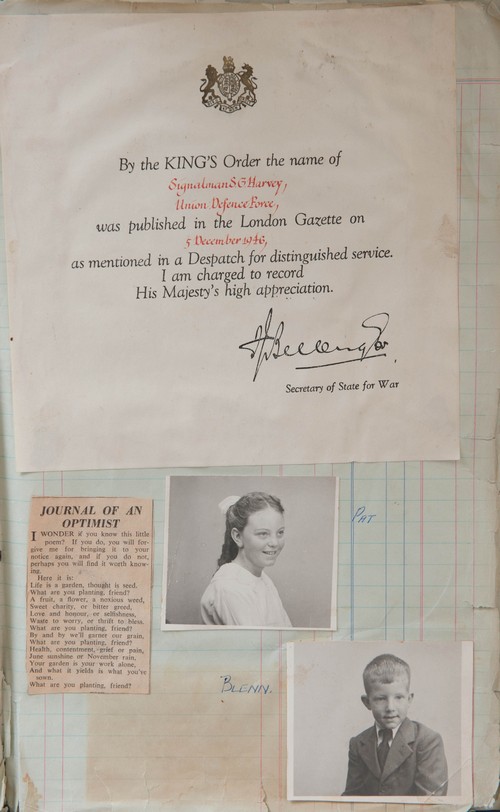 By the KING'S Order the name of
Signalman S.G. Harvey,
Union Defence Force,
was published in the London Gazette on
5 December 1946,
as mentioned in a Despatch for distinguished service.
I am charged to record
His Majesty's high appreciation.
Secretary of State for War
JOURNAL OF AN
OPTIMIST
I WONDER if you know this little
poem? If you do, you will for-
give me for bringing it to your
notice again, and if you do not,
perhaps you will find it worth know-
ing.
Here it is:
Life is a garden, thought is seed.
What are you planting, friend?
A fruit, a flower, a noxious weed,
Sweet charity, or bitter greed,
Love and honour, or selfishness,
Waste to worry, or thrift to bless.
What are you planting, friend?
By and by we'll garner our grain,
What are you planting, friend?
Health, contentment, grief or pain,
June sunshine or November rain,
Your garden is your work alone,
And what it yields is what you've
sown.
What are you planting, friend?
PAT
BLENN.